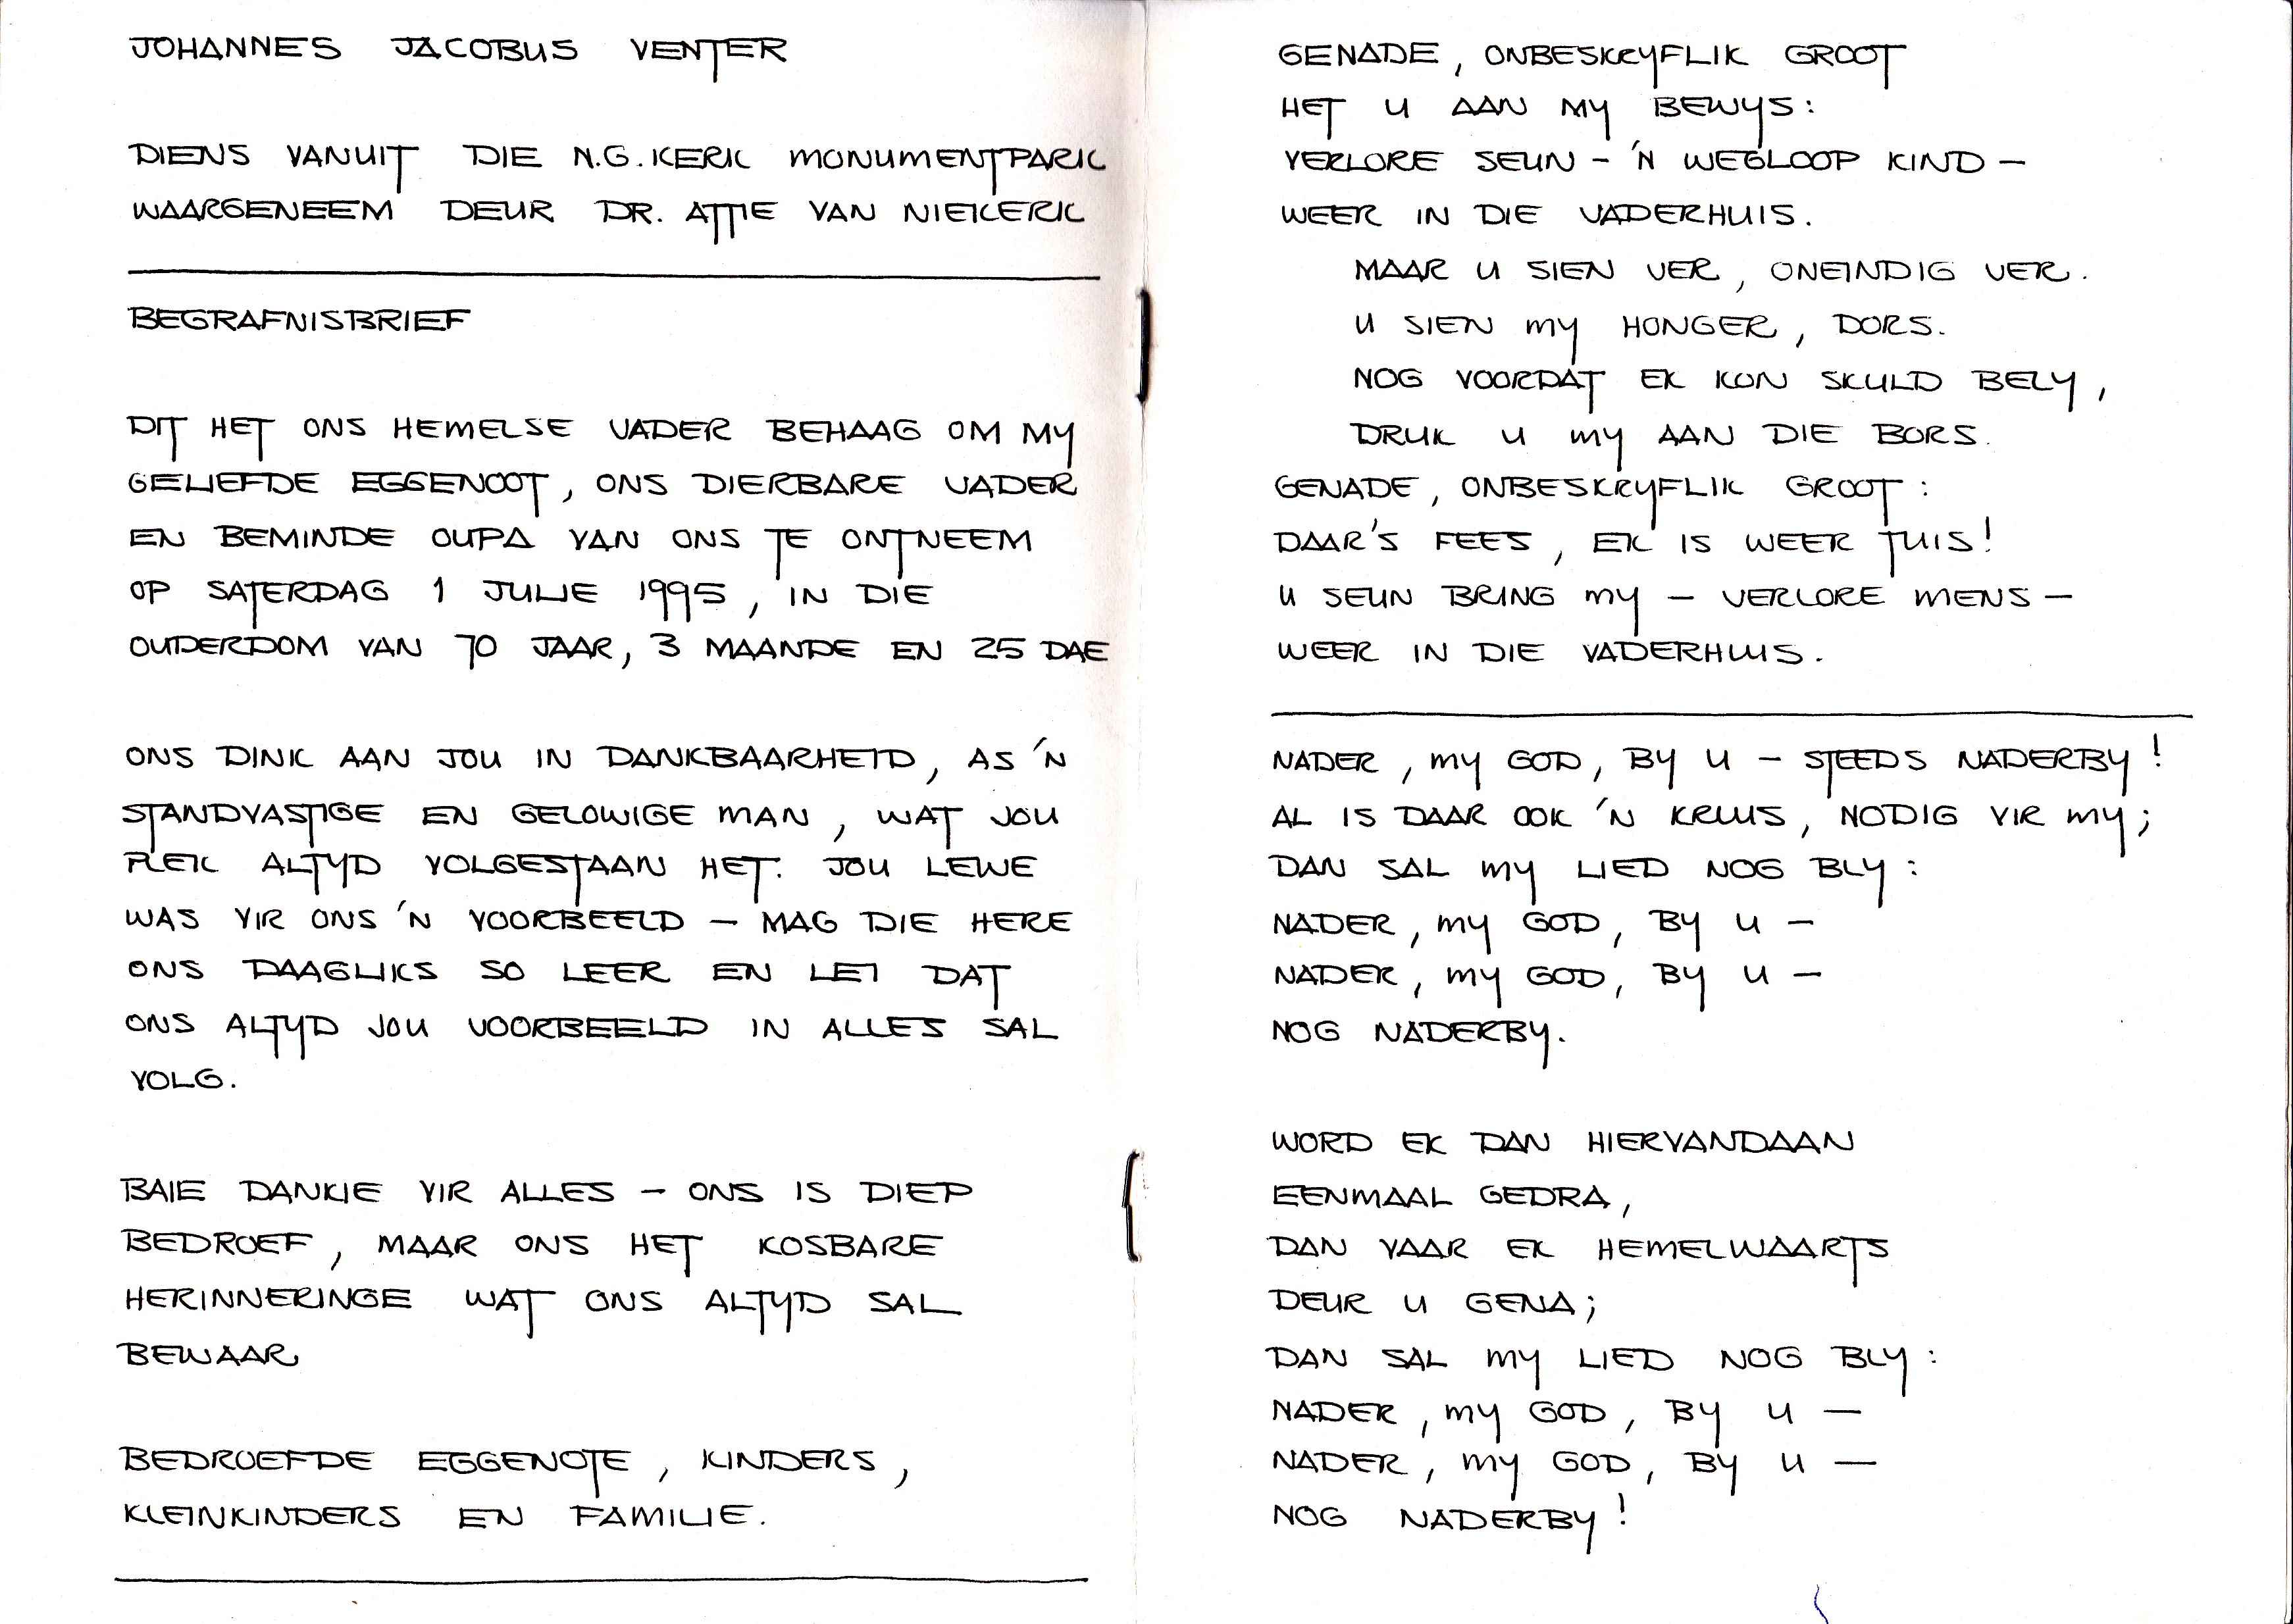 JOHANNES JACOBUS VENTER
DIENS VANUIT DIE N.G. KERK MONUMENTPARK
WAARGENEEM DEUR DR. ATTIE VAN NIEKERK
BEGRAFNISBRIEF
DIT HET ONS HEMELSE VADER BEHAAG OM MY
GELIEFDE EGGENOOT, ONS DIERBARE VADER
EN BEMINDE OUPA VAN ONS TE ONTNEEM
OP SATERDAG 1 JULIE 1995, IN DIE
OUDERDOM VAN 70 JAAR, 3 MAANDE EN 25 DAE
ONS DINK AAN JOU IN DANKBAARHEID, AS 'N
STANDVASTIGE EN GELOWIGE MAN, WAT JOU
PLEK ALTYD VOLGESTAAN HET. JOU LEWE
WAS VIR ONS 'N VOORBEELD - MAG DIE HERE
ONS DAAGLIKS SO LEER EN LEI DAT
ONS ALTYD JOU VOORBEELD IN ALLES SAL
VOLG.
BAIE DANKIE VIR ALLES - ONS IS DIEP
BEDROEF, MAAR ONS HET KOSBARE
HERINNERINGE WAT ONS ALTYD SAL
BEWAAR
BEDROEFDE EGGENOTE, KINDERS,
KLEINKINDERS EN FAMILIE.
GENADE, ONBESKRYFLIK GROOT
HET U AAN MY BEWYS:
VERLORE SEUN - 'N WEGLOOP KIND -
WEER IN DIE VADERHUIS.
MAAR U SIEN VER, ONEINDIG VER.
U SIEN MY HONGER, DORS.
NOG VOORDAT EK KON SKULD BELY,
DRUK U MY AAN DIE BORS.
GENADE, ONBESKRYFLIK GROOT:
DAAR'S FEES, EK IS WEER TUIS!
U SEUN BRING MY - VERLORE MENS -
WEER IN DIE VADERHUIS.
NADER, MY GOD, BY U - STEEDS NADERBY!
AL IS DAAR OOK 'N KRUIS, NODIG VIR MY;
DAN SAL MY LIED NOG BLY:
NADER, MY GOD, BY U -
NADER, MY GOD, BY U -
NOG NADERBY.
WORD EK DAN HIERVANDAAN
EENMAAL GEDRA,
DAN VAAR EK HEMELWAARTS
DEUR U GENA;
DAN SAL MY LIED NOG BLY:
NADER, MY GOD, BY U -
NADER, MY GOD, BY U -
NOG NADERBY!